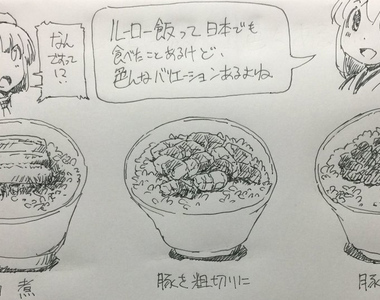 ルーロー飯って日本でも
食べたことあるけど、
色んなバリエーションあるよね。
なん
だって!?
煮
豚を粗切りに
豚